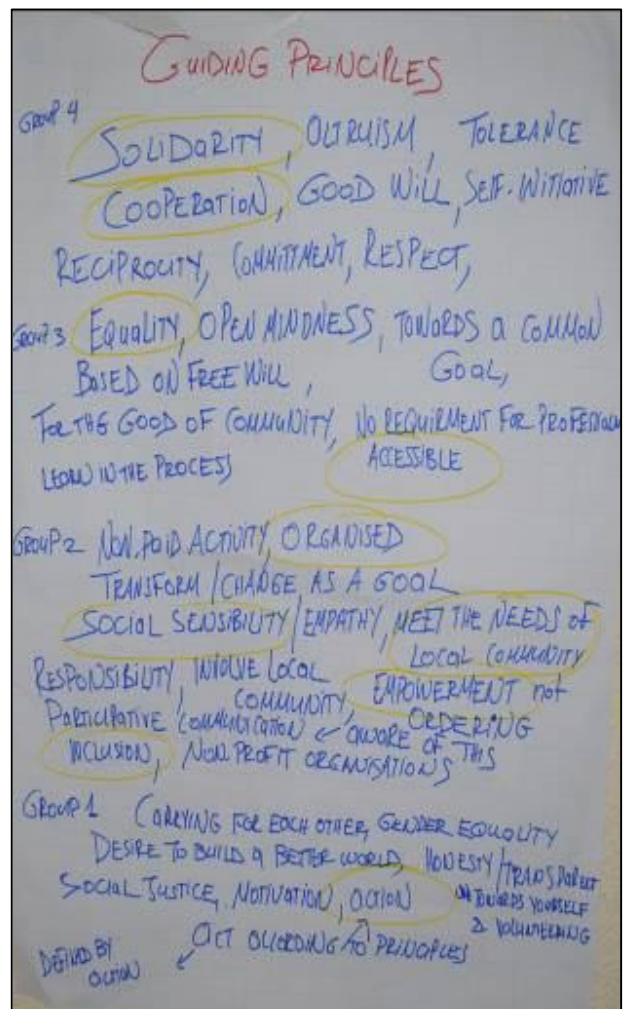 GUIDING PRINCIPLES
GROUP 4
SOLIDARITY, OLTRUISM, TOLERANCE
COOPERATION, GOOD WILL, SELF-INITIATIVE
RECIPROCITY, COMMITTMENT, RESPECT,
GROUP 3 EQUALITY, OPEN MINDNESS, TOWARDS A COMMON
BASED ON FREE WILL, GOAL,
FOR THE GOOD OF COMMUNITY, NO REQUIRMENT FOR
LEARN IN THE PROCESS ACCESSIBLE
GROUP 2 NON-PAID ACTIVITY, ORGANISED
TRANSFORM / CHANGE AS A GOAL
SOCIAL SENSIBILITY / EMPATHY, MEET THE NEEDS OF
LOCAL COMMUNITY
RESPONSIBILITY, INVOLVE LOCAL
COMMUNITY, EMPOWERMENT not
ORDERING
PARTICIPATIVE COMMUNICATION ← AWARE OF THIS
INCLUSION, NON PROFIT ORGANISATIONS
GROUP 1 CARRYING FOR EACH OTHER, GENDER EQUALITY
DESIRE TO BUILD A BETTER WORLD, HONESTY/TRANSPARENT
SOCIAL JUSTICE, MOTIVATION, ACTION
TOWARDS YOURSELF
& VOLUNTEERING
ACT ACCORDING TO PRINCIPLES
DEFINED BY
ACTION